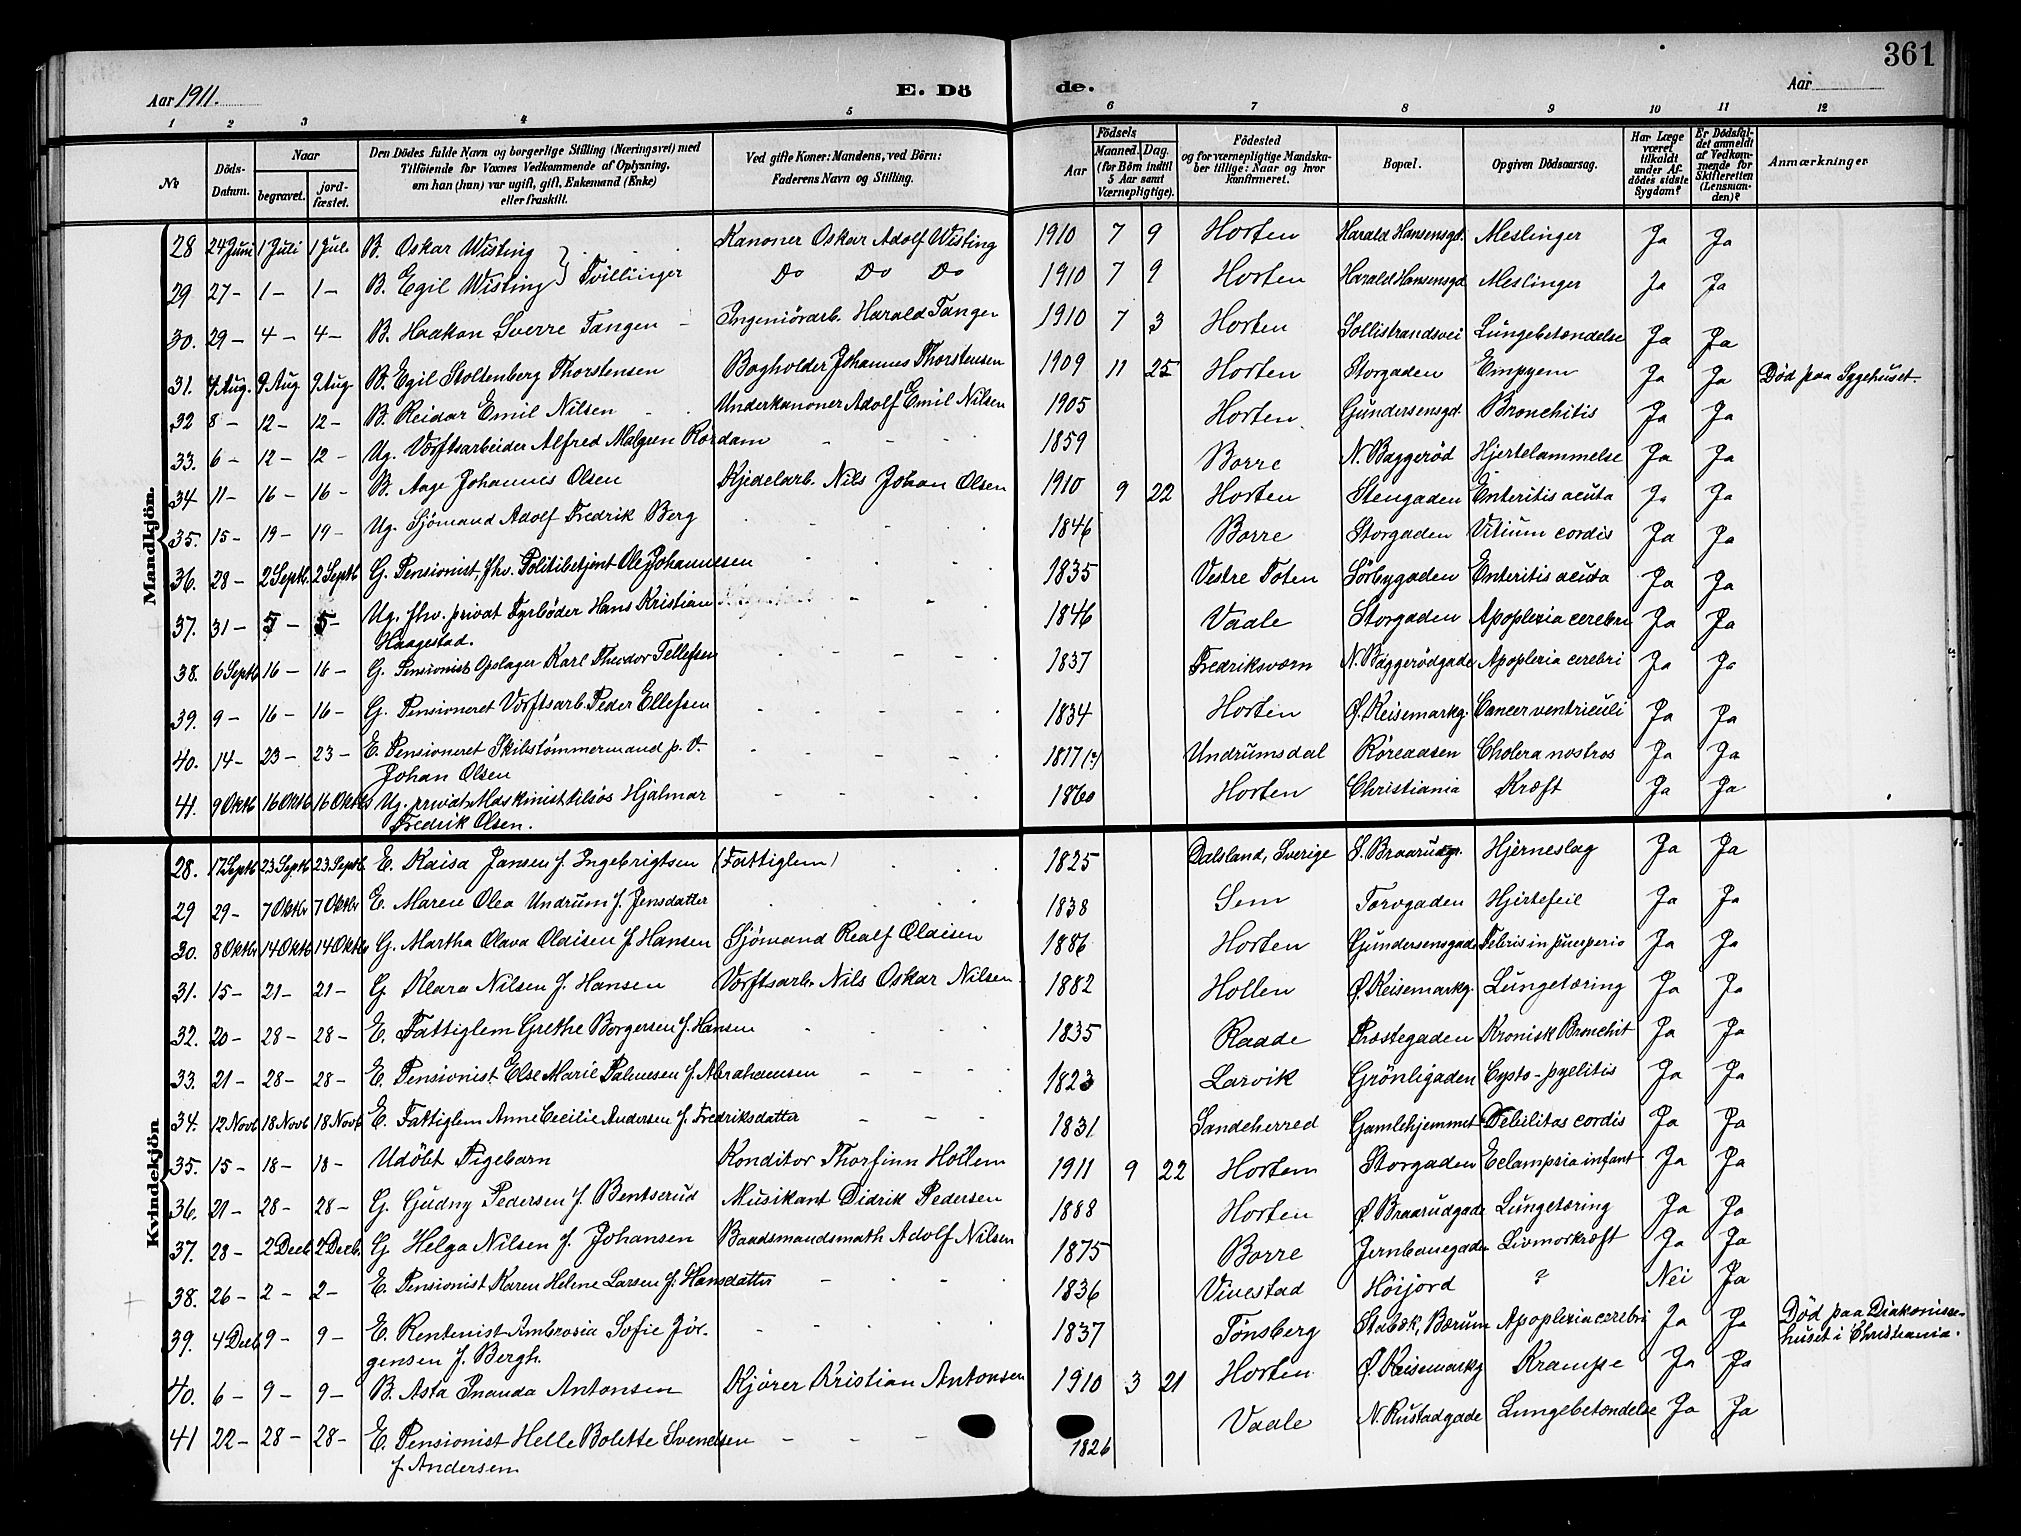 361
Aar 1911.
E. Dö
de.
Aar
1 2 3 4 5 6 7 8 9 10 11 12
№ | Döds-Datum. | Naar begravet. | jord-fæstet. | Den Dödes fulde Navn og borgerlige Stilling (Næringsvei) med Tilföiende for Voxnes Vedkommende af Oplysning, om han (hun) var ugift, gift, Enkemand (Enke) eller fraskilt. | Ved gifte Koner: Mandens, ved Börn: Faderens Navn og Stilling. | Födsels Aar | Maaned. | Dag. (for Börn indtil 5 Aar samt Værnepligtige). | Födested og for værnepligtige Mandska-ber tillige: Naar og hvor konfirmeret. | Bopæl. | Opgiven Dödsaarsag. | Har Læge været tilkaldt under Af-dödes sidste Sygdom? | Er Dödsfal-det anmeldt af Vedkom-mende for Skifteretten (Lensman-den)? | Anmærkninger
Mandkjön.
28 24 Juni 1 Juli 1 Juli B. Oskar Wisting } Kanoner Oskar Adolf Wisting 1910 7 9 Horten Harald Hansensgd. Meslinger Ja Ja
29 27 – 1 – 1 – B. Egil Wisting } Tvillinger Do Do Do 1910 7 9 Horten Harald Hansensgd Meslinger Ja Ja
30. 29 – 4 – 4 – B. Haakon Sverre Tangen – Ingeniörarb. Harald Tangen 1910 7 3 Horten Sollistrandsvei Lungebetændelse Ja Ja
31. 4 Aug. 9 Aug 9 Aug B. Egil Stoltenberg Thorstensen Bogholder Johannes Thorstensen 1909 11 25 Horten Storgaden Empyem Ja Ja Död paa Sygehuset.
32 8 – 12 – 12 – B. Reidar Emil Nilsen Underkanoner Adolf Emil Nilsen 1905 Horten Gundersensgd. Bronchitis Ja Ja
33. 6 – 12 – 12 – Ug. Værftsarbeider Alfred Malgeen Rordam 1859 Borre N. Baggeröd Hjertelammelse Ja Ja
34 11 – 16 – 16 – B. Aage Johannes Olsen Kjedelarb. Nils Johan Olsen 1910 9 22 Horten Stengaden Enteritis acuta Ja Ja
35. 15 – 19 – 19 – Ug. Sjömand Adolf Fredrik Berg 1846 Borre Storgaden Vitium cordis Ja Ja
36. 28 – 2 Septb. 2 Septb G. Pensionist fhv. Politibetjent Ole Johannesen 1835 Vestre Toten Sörbygaden Enteritis acuta Ja Ja
37. 31 – 5 – 5 – Ug. fhv. privat Fyrböder Hans Kristian 1846 Vaale Storgaden Apoplexia cerebri Ja Ja
Haagestad.
38. 6 Septb 16 – 16 – G. Pensionist Opslager Karl Theodor Tellefsen 1837 Fredriksværn N. Baggerödgade Apoplexia cerebri Ja Ja
39. 9 – 16 – 16 – G. Pensioneret Værftsarb. Peder Ellefsen 1834 Horten Ø. Keisemarkg. Cancer ventriculi Ja Ja
40. 14 – 23 – 23 – E. Pensioneret Skibstömmermand p. V. 1817 (?) Undrumsdal Röreaasen Cholera nostras Ja Ja
Johan Olsen
41. 9 Oktb 16 Oktb 16 Oktb Ug. privat Maskinist tilsös Hjalmar 1860 Horten Christiania Kræft Ja Ja
Fredrik Olsen.
Kvindekjön
28. 17 Septb 23 Septb 23 Septb. E. Kaisa Jansen f. Ingebrigtsen (Fattiglem) 1825 Dalsland, Sverige S. Braarudg. Hjerneslag Ja Ja
29 29 – 7 Oktbr 7 Oktbr E. Maren Olea Undrum f. Jensdatter 1838 Sem Torvgaden Hjertefeil Ja Ja
30. 8 Oktbr 14 Oktb 14 Oktb G. Martha Olava Oldisen f. Hansen Sjömand Realf Oldisen 1886 Horten Gundersensgade Febris in puerperio Ja Ja
31. 15 – 21 – 21 – G Klara Nilsen f. Hansen Værftsarb. Nils Oskar Nilsen 1882 Hollen Ø. Keisemarkg. Lungetæring Ja Ja
32. 20 – 28 – 28 – E. Fattiglem Grethe Borgersen f. Hansen 1835 Raade Præstegaden Kronisk Bronchit Ja Ja
33. 21 – 28 – 28 – E. Pensionist Else Marie Palmesen f. Abrahamsen 1823 Larvik Grönligaden Cysto-pyelitis Ja Ja
34. 12 Novb 18 Novb 18 Novb E. Fattiglem Anne Cecilie Andersen f. Fredriksdatter 1831 Sandeherred Gamlehjemmet Debilitas cordis Ja Ja
35. 15 – 18 – 18 – Udöbt Pigebarn Konditor Thorfinn Hollem 1911 9 22 Horten Storgaden Eclampsia infant Ja Ja
36. 21 – 28 – 28 – G. Gudny Pedersen f. Bentserud Musikant Didrik Pedersen 1888 Horten Ø. Braarudgade Lungetæring Ja Ja
37. 28 – 2 Decb. 2 Decb. G Helga Nilsen f. Johansen Baadsmandsmath Adolf Nilsen 1875 Borre Jernbanegaden Livmorkræft Ja Ja
38. 26 – 2 – 2 – E. Pensionist Karen Helene Larsen f. Hansdatter 1836 Vivestad Höijord ? Nei Ja
39. 4 Decb. 9 – 9 – E. Rentenist Ambrosia Sofie Jör- 1837 Tönsberg Stabæk, Bærum Apoplexia cerebri Ja Ja Död paa Diakonisse-
gensen f. Bergh. huset i Christiania.
40. 6 – 9 – 9 – B. Asta Inanda Antonsen Kjörer Kristian Antonsen 1910 3 21 Horten Ø. Keisemarkg Krampe Ja Ja
41 22 – 28 – 28 – E. Pensionist Helle Bolette Svendsen 1826 Vaale N. Rustadgade Lungebetændelse Ja Ja
f. Andersen